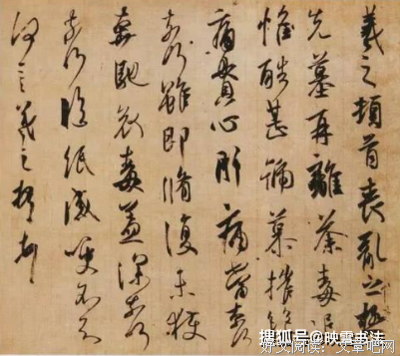 羲之頓首喪亂之極
先墓再離荼毒追
惟酷甚號慕摧絕
痛貫心肝痛當奈何
奈何雖即脩復未獲
奔馳哀毒益深奈何
奈何臨紙感哽不知
何言羲之頓首頓首
搜狐号@映霞书法
好文阅读：文章吧网